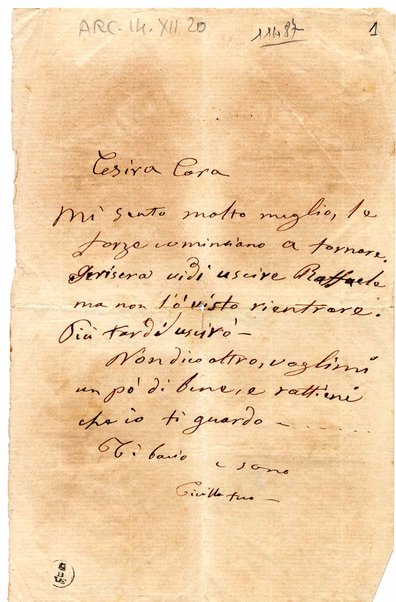 ARC-14.XII.20
11487
1
Tesira Cara
Mi sento molto meglio, le
forze cominciano a tornare.
Jerisera vidi uscire Raffaele
ma non l'ò visto rientrare.
Più tardi usciró-
Non dico altro, voglimi
un pó di bene, e
che io ti guardo
Ti bacio e sono
tuo